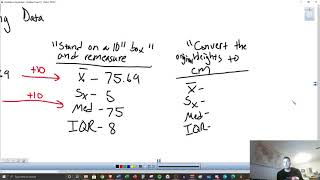 ng Data
"Stand on a 10" box"
and remeasure
"Convert the
original heights to
cm
69 +10 x̄ - 75.69
+10 Sx - 5
Med - 75
IQR - 8
x̄ -
Sx -
Med -
IQR -